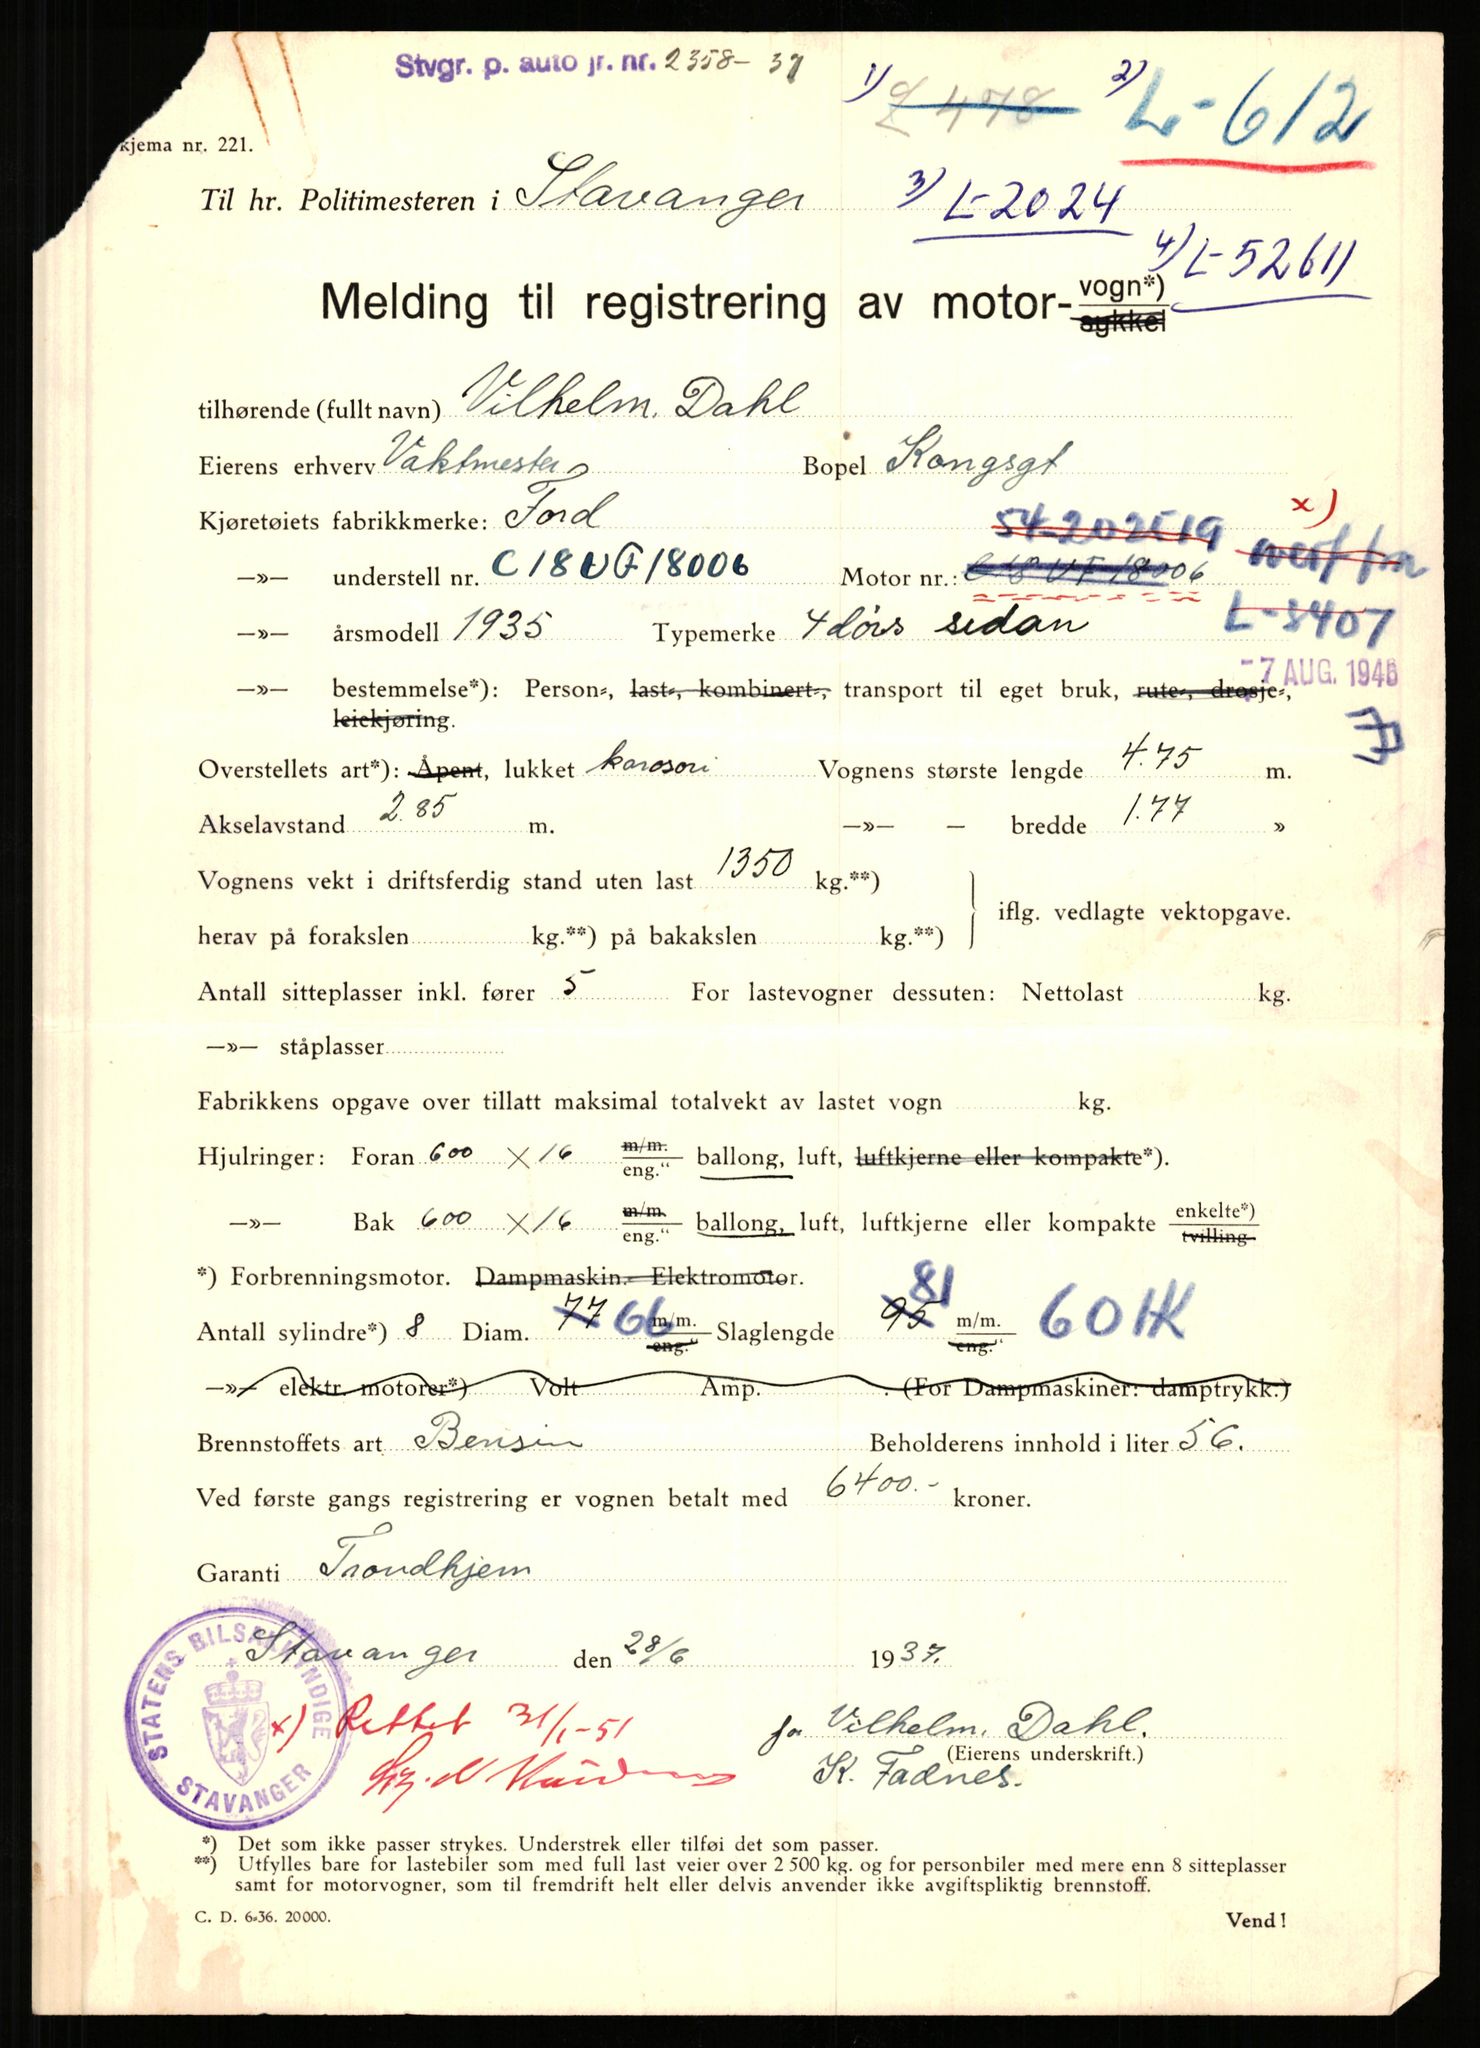 Stvgr. p. auto jr. nr. 2358-37
1) L 478 2) L-612
kjema nr. 221.
Til hr. Politimesteren i Stavanger 3) L-2024
4) L-52611
Melding til registrering av motor- vogn*)
sykkel
tilhørende (fullt navn) Vilhelm. Dahl
Eierens erhverv Vaktmester Bopel Kongsgt
Kjøretøiets fabrikkmerke: Ford 54-202519 x)
—»— understell nr. C18UF18006 Motor nr.: C18UF18006
—»— årsmodell 1935 Typemerke 4 dørs sedan L-8407
-7 AUG. 1946
—»— bestemmelse*): Person-, last-, kombinert-, transport til eget bruk, rute-, drosje-,
leiekjøring.
Overstellets art*): Åpent, lukket karosori Vognens største lengde 4.75 m.
Akselavstand 2.85 m. —»— — bredde 1.77 »
Vognens vekt i driftsferdig stand uten last 1350 kg.**)
iflg. vedlagte vektopgave.
herav på forakslen kg.**) på bakakslen kg.**)
Antall sitteplasser inkl. fører 5 For lastevogner dessuten: Nettolast kg.
—»— ståplasser
Fabrikkens opgave over tillatt maksimal totalvekt av lastet vogn kg.
Hjulringer: Foran 600 × 16 m/m. eng." ballong, luft, luftkjerne eller kompakte*).
—»— Bak 600 × 16 m/m. eng." ballong, luft, luftkjerne eller kompakte enkelte*) tvilling
*) Forbrenningsmotor. Dampmaskin.- Elektromotor.
Antall sylindre*) 8 Diam. 77 66 m/m. eng." Slaglengde 95 81 m/m. eng." 60 HK
—»— elektr. motorer*) Volt Amp. . (For Dampmaskiner: damptrykk.)
Brennstoffets art Bensin Beholderens innhold i liter 56.
Ved første gangs registrering er vognen betalt med 6400.- kroner.
Garanti Trondhjem
Stavanger den 28/6 1937.
STATENS BILSAKKYNDIGE
STAVANGER
x) Rettet 31/1-51
for Vilhelm. Dahl.
(Eierens underskrift.)
K. Fadnes.
*) Det som ikke passer strykes. Understrek eller tilføi det som passer.
**) Utfylles bare for lastebiler som med full last veier over 2 500 kg. og for personbiler med mere enn 8 sitteplasser
samt for motorvogner, som til fremdrift helt eller delvis anvender ikke avgiftspliktig brennstoff.
C. D. 6-36. 20000.
Vend!